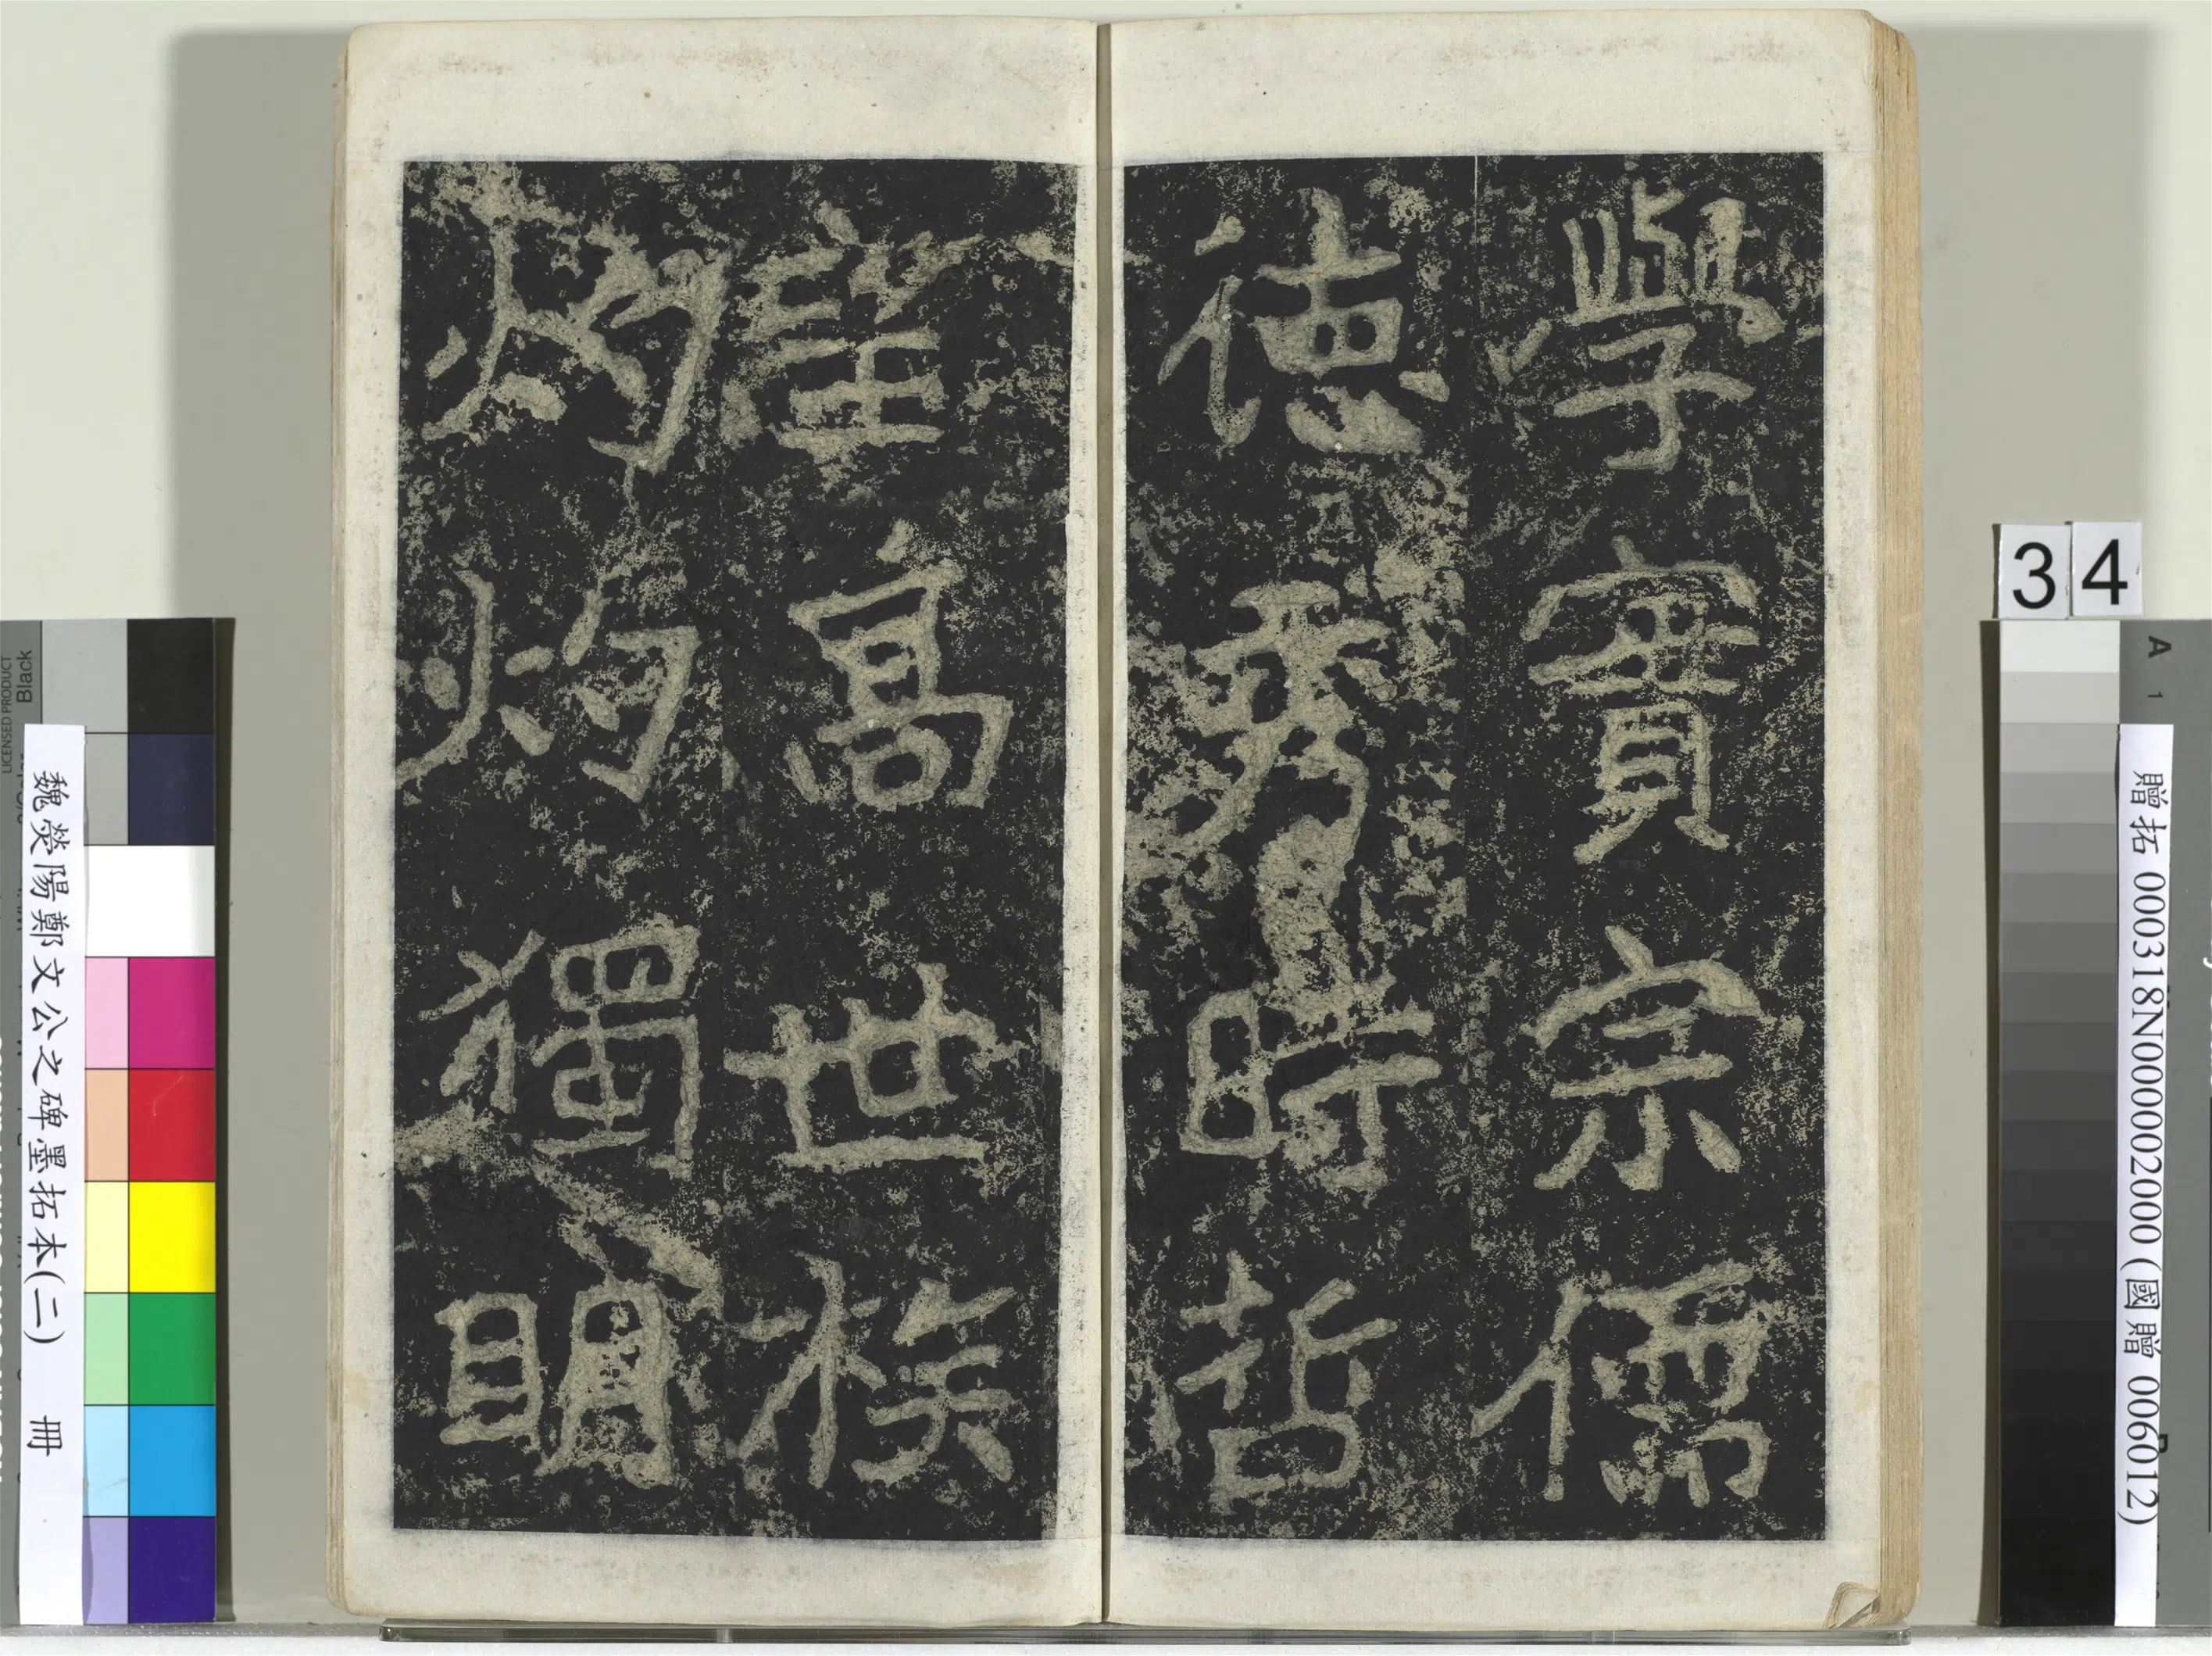 學實宗儒
德秀時哲
望高世族
灼灼獨明
34
贈拓 000318N000002000 (國贈 006012)
魏滎陽鄭文公之碑墨拓本(二) 冊
Black
LICENSED PRODUCT
A 1